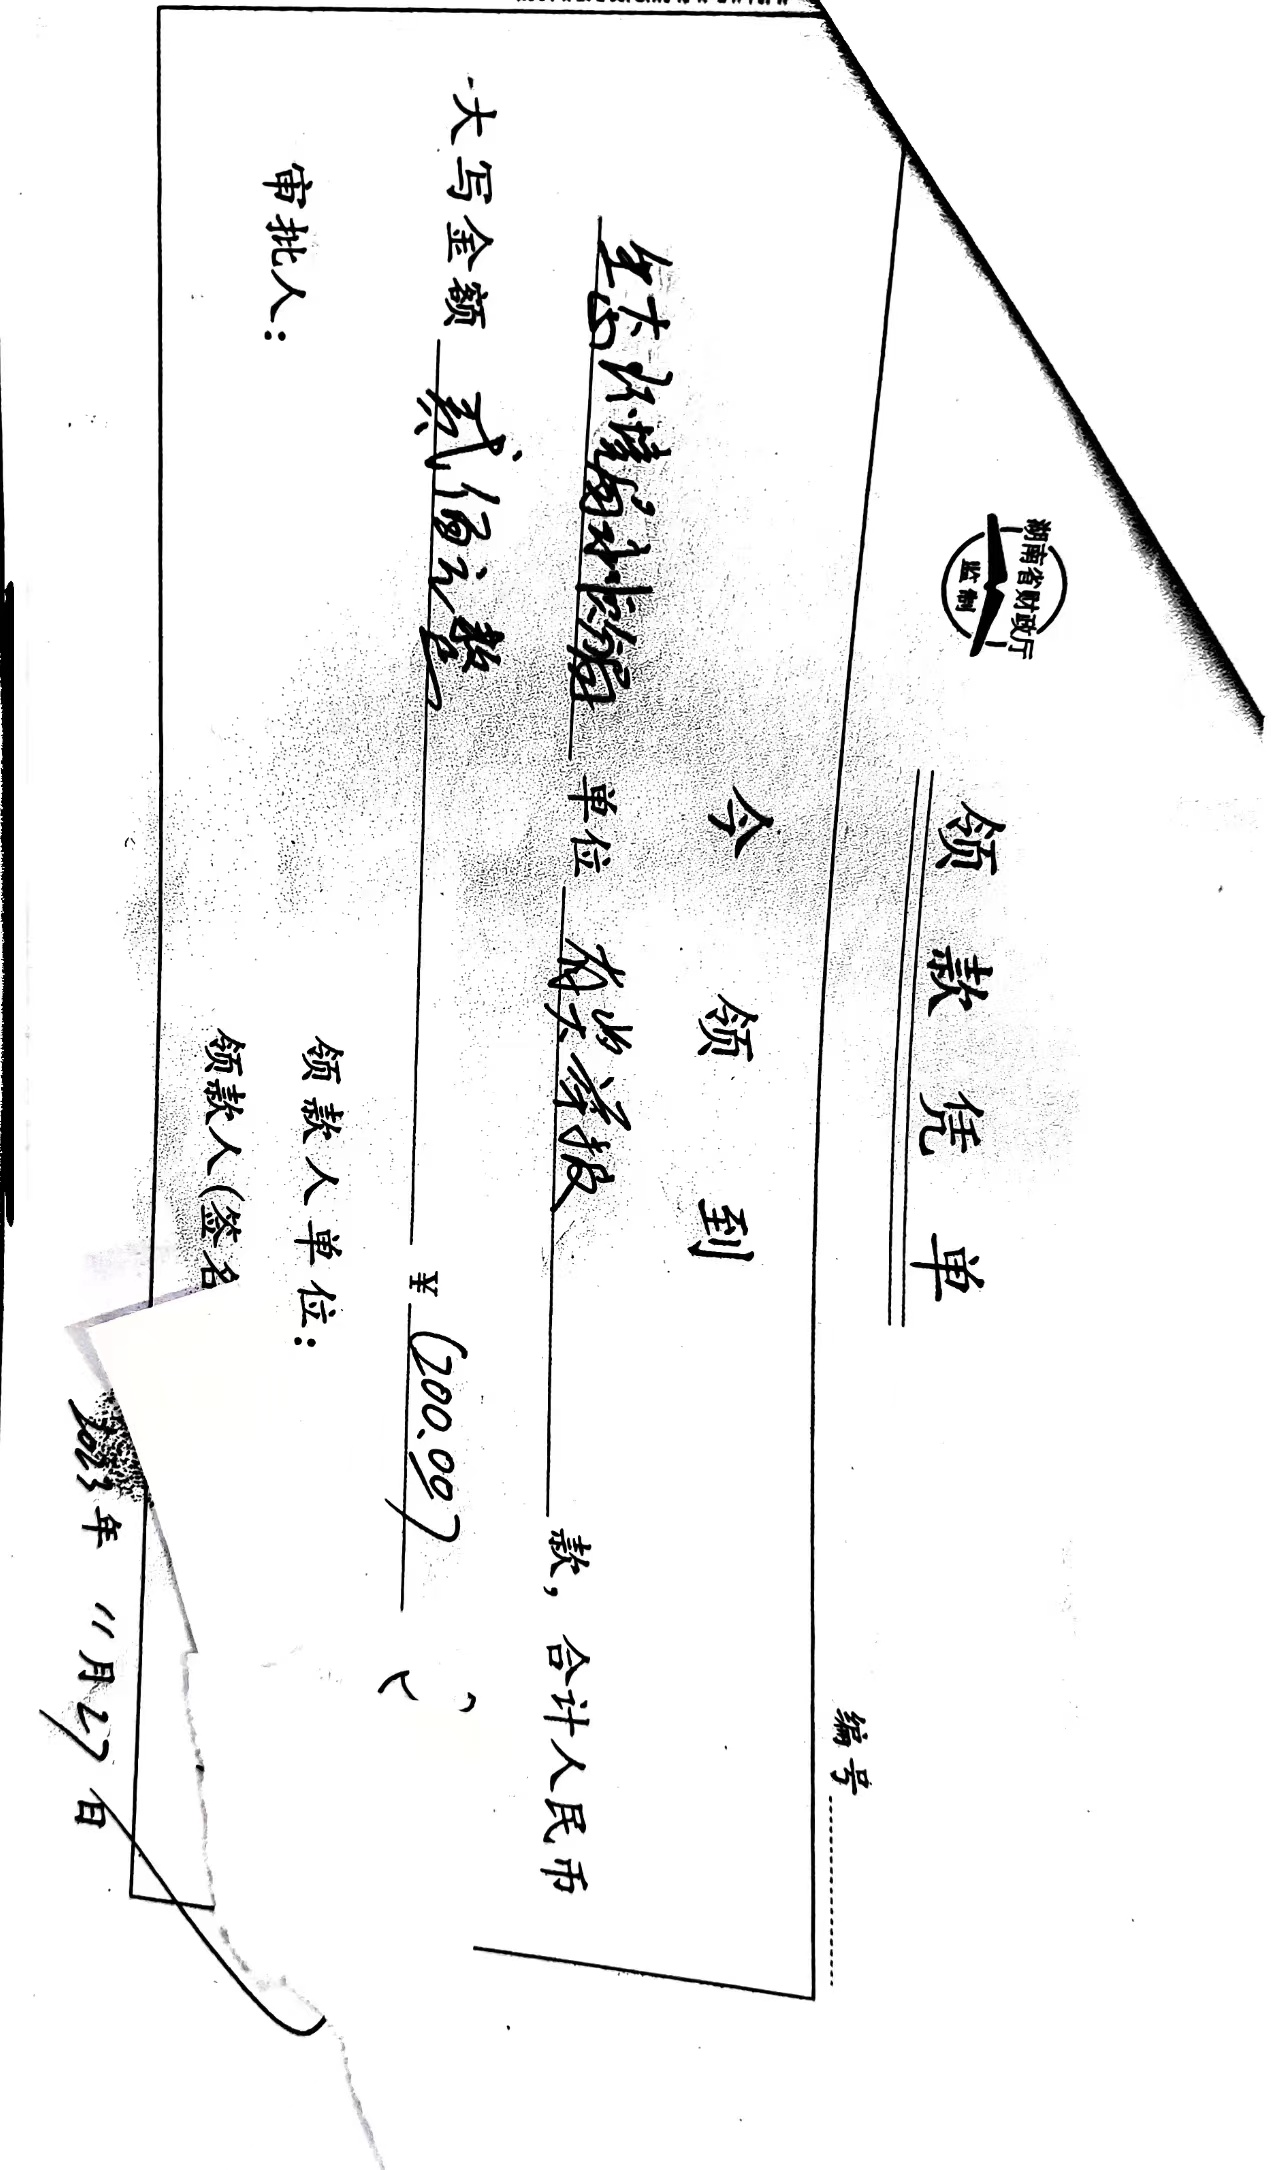 湖南省财政厅
监制
领款凭单
编号
今领到
生态环境局 单位 有奖举报 款，合计人民币
大写金额 贰佰元整 ¥(200.00)
审批人： 领款人单位：
领款人(签名
2023年 11月27日